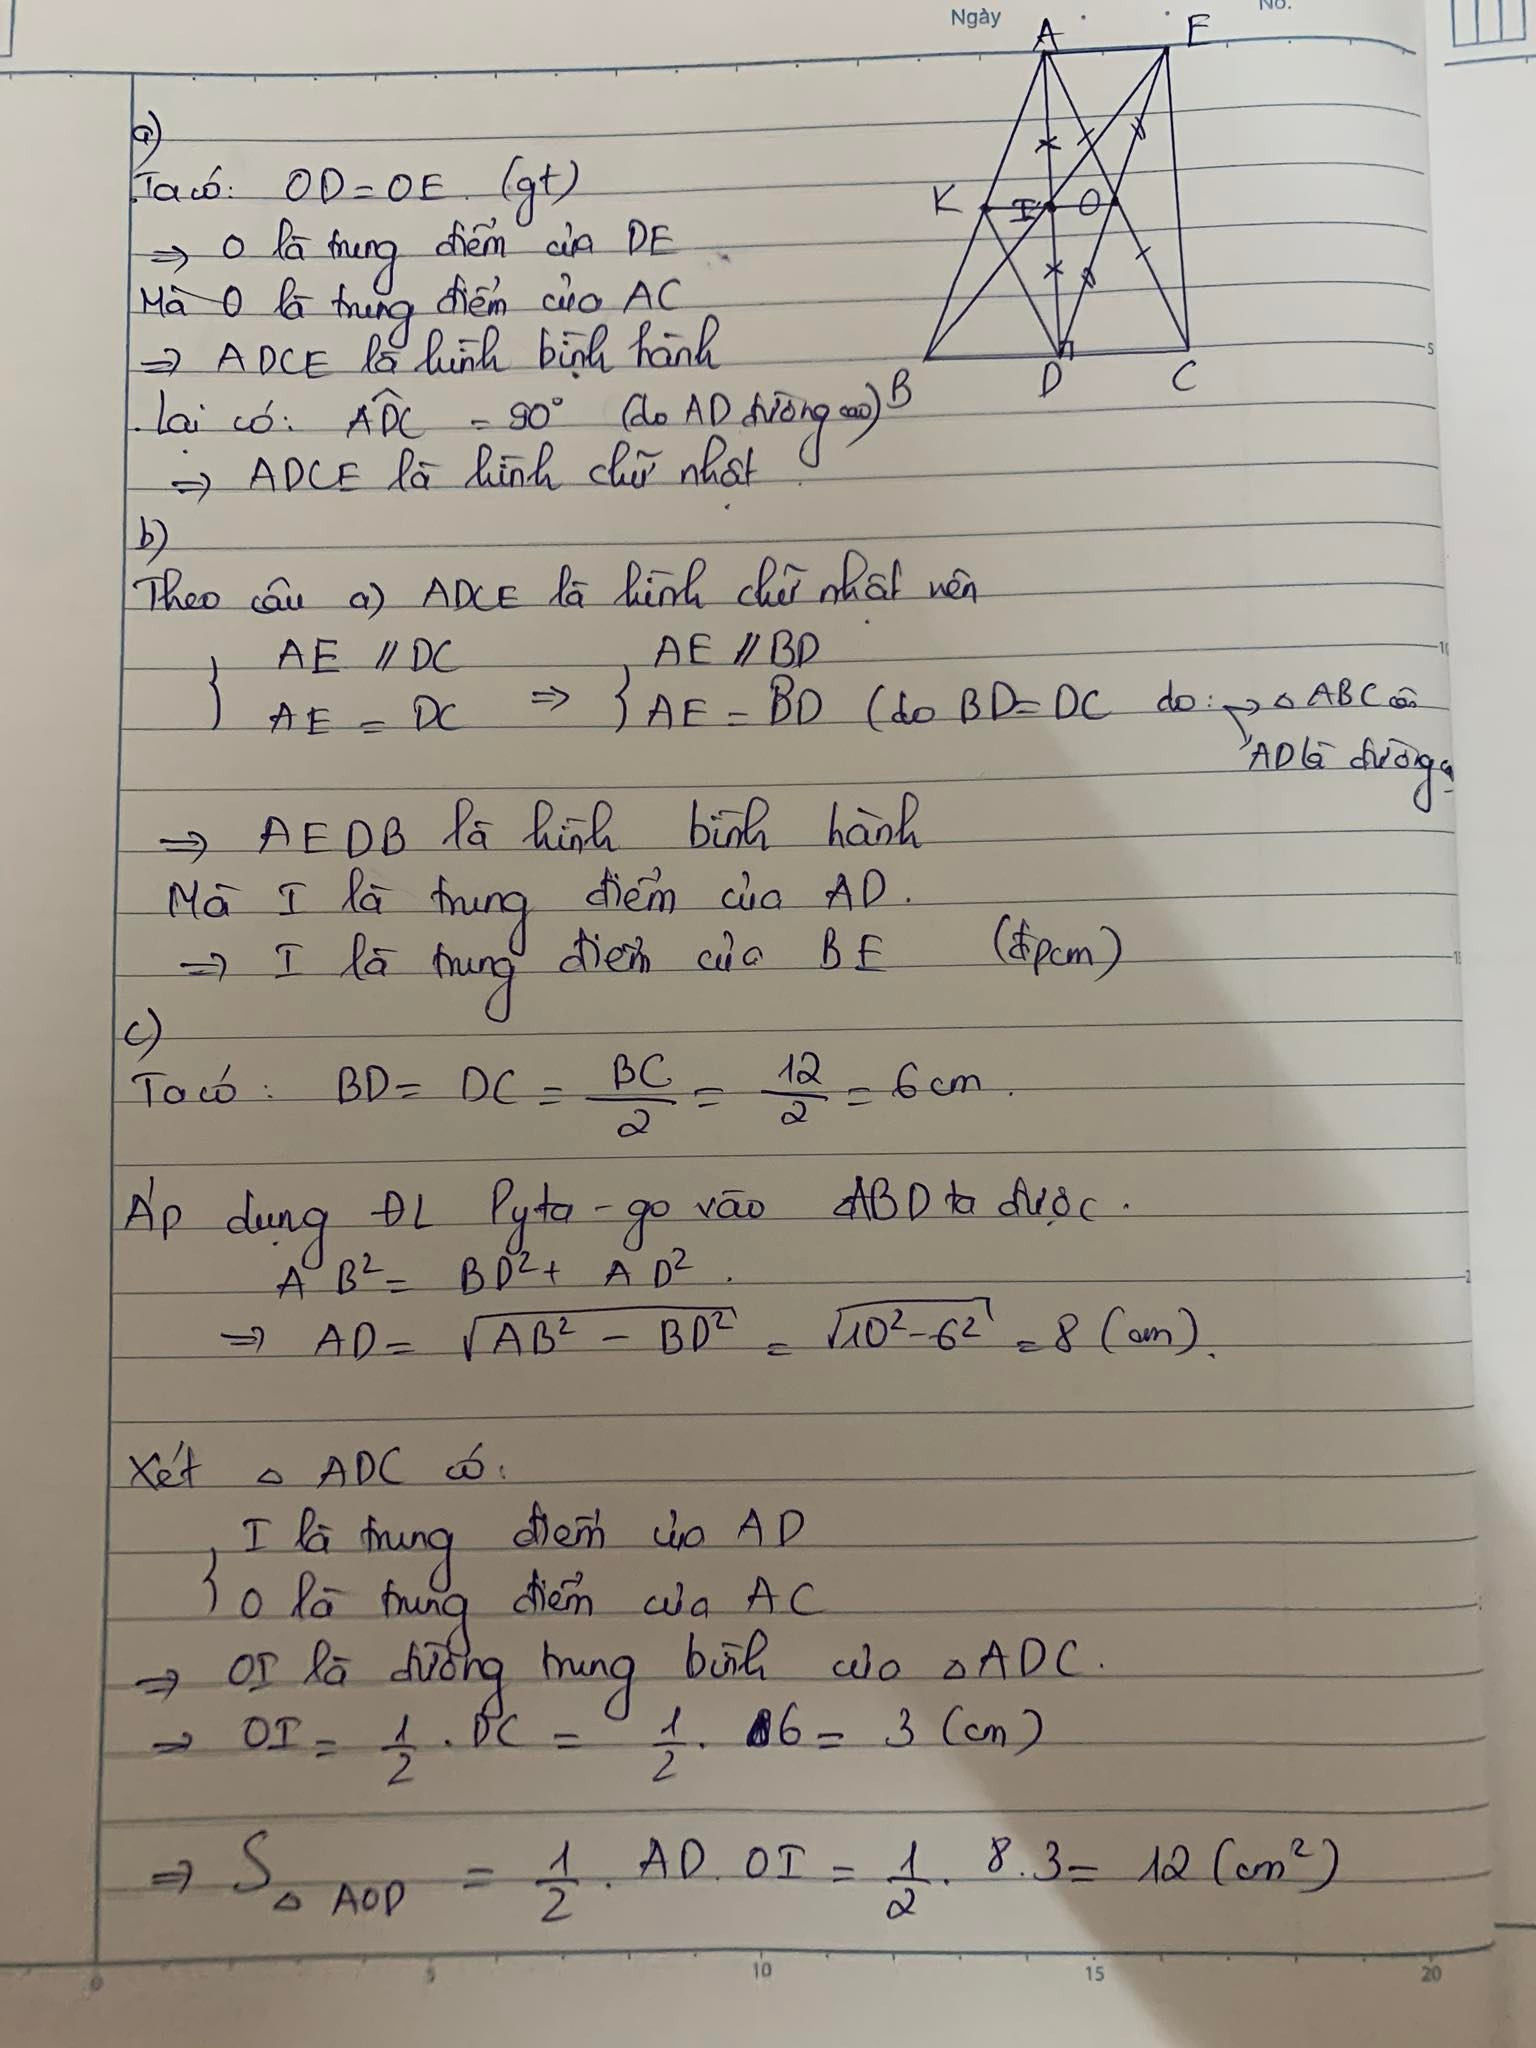 Ngày
No.
A E
K I O
B D C
a)
Ta có: OD = OE (gt)
⇒ O là trung điểm của DE
Mà O là trung điểm của AC
⇒ ADCE là hình bình hành
Lại có: ADC = 90° (do AD đường cao)
⇒ ADCE là hình chữ nhật
b)
Theo câu a) ADCE là hình chữ nhật nên
AE // DC AE // BD
AE = DC ⇒ AE = BD (do BD = DC do: → △ ABC cân
AD là đường
⇒ AEDB là hình bình hành
Mà I là trung điểm của AD.
⇒ I là trung điểm của BE (đpcm)
c)
Ta có: BD = DC = BC/2 = 12/2 = 6 cm.
Áp dụng ĐL Pyta-go vào ABD ta được.
AB² = BD² + AD².
⇒ AD = √(AB² - BD²) = √(10² - 6²) = 8 (cm).
Xét △ ADC có:
I là trung điểm của AD
O là trung điểm của AC
⇒ OI là đường trung bình của △ADC.
⇒ OI = 1/2 . DC = 1/2 . 6 = 3 (cm)
⇒ S△AOD = 1/2 . AD . OI = 1/2 . 8 . 3 = 12 (cm²)
0 5 10 15 20